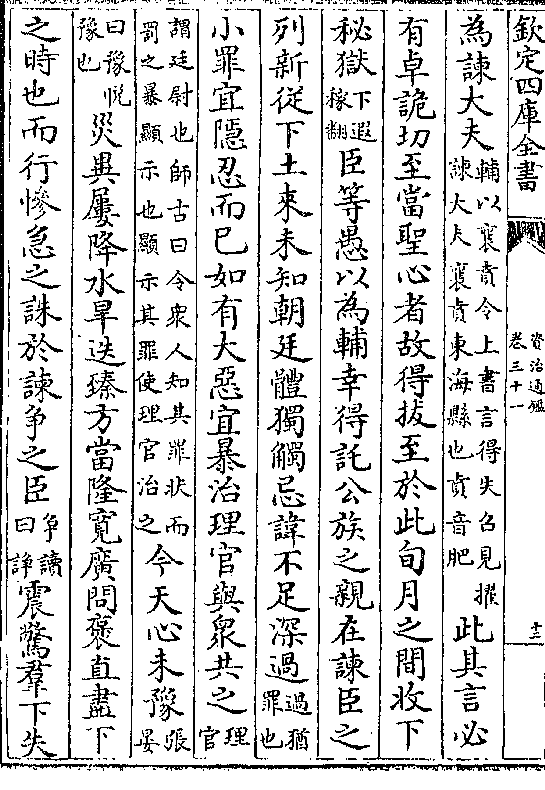 欽定四庫全書
資治通鑑
卷三十一
十三
為諫大夫輔以襄賁令上書言得失召見擢諫大夫襄賁東海縣也賁音肥此其言必
有卓詭切至當聖心者故得拔至於此旬月之間收下
秘獄下遐稼翻臣等愚以為輔幸得託公族之親在諫臣之
列新從下土來未知朝廷體獨觸忌諱不足深過過猶罪也
小罪宜隱忍而已如有大惡宜暴治理官與衆共之理官
謂廷尉也師古曰令衆人知其罪狀而罰之暴顯示也顯示其罪使理官治之今天心未豫張晏
曰豫悅豫也災異屢降水旱迭臻方當隆寛廣問褒直盡下
之時也而行慘急之誅於諫争之臣争讀曰諍震驚羣下失